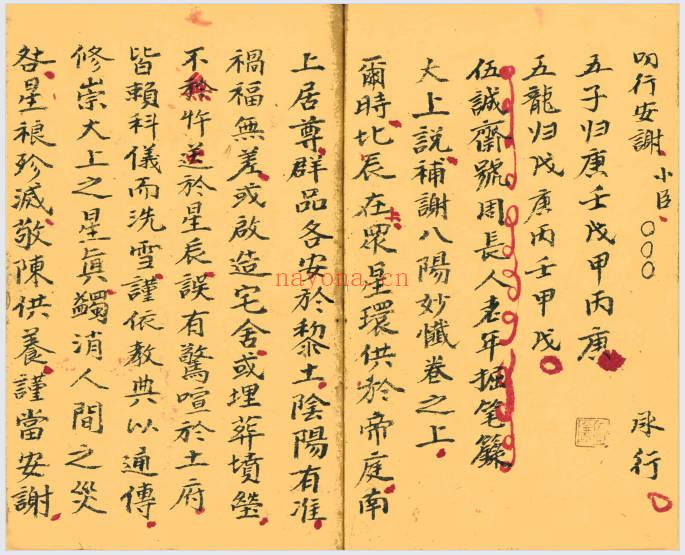 叩行安謝小臣○○○ 承行
五子归庚壬戊甲丙庚
五龍归戊庚丙壬甲戊
伍誠齋號周長人老年掘笔籙
太上説補謝八陽妙懺卷之上
爾時北辰在眾星環供於帝庭南
上居尊群品各安於黎土陰陽有准
禍福無差或啟造宅舍或埋葬墳塋
不 忤送於星辰誤有驚喧於土府
皆賴科儀而洗雪謹依教典以通傳
修崇大上之星真蠲消人間之災
咎星祲殄滅敬陳供養謹當安謝
nayona.cn